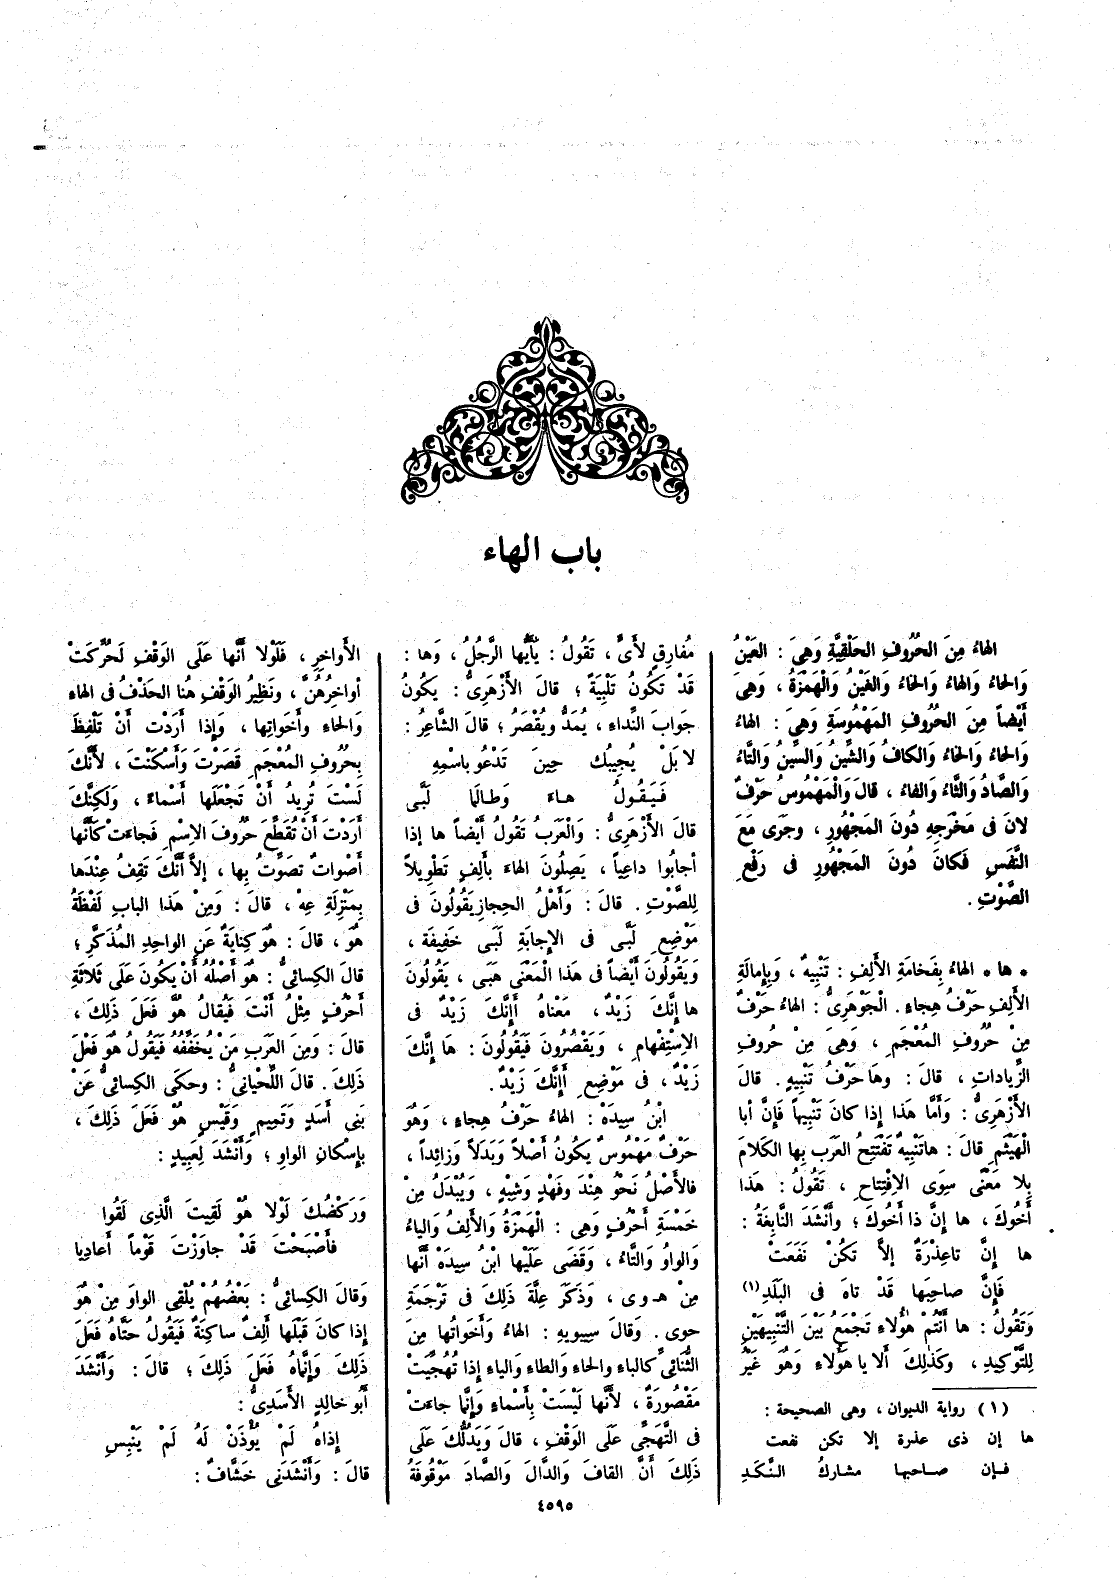 باب الهاء
الهاءُ مِنَ الحُرُوفِ الحَلْقِيَّةِ وَهِىَ : العَيْنُ
وَالحاءُ وَالهاءُ وَالخَاءُ وَالغَيْنُ وَالْهَمْزَةُ ، وَهِىَ
أَيْضاً مِنَ الحُرُوفِ المَهْمُوسَةِ وَهِىَ : الهاءُ
وَالحاءُ وَالخاءُ وَالكافُ وَالشِّينُ وَالسِّينُ وَالتَّاءُ
وَالصَّادُ وَالثَّاءُ وَالفاءُ ، قالَ وَالْمَهْمُوسُ حَرْفٌ
لانَ فى مَخْرَجِهِ دُونَ المَجْهُورِ ، وجَرَى مَعَ
النَّفَسِ فَكانَ دُونَ المَجْهُورِ فى رَفْعِ
الصَّوْتِ .
• ها • الهاءُ بِفَخامَةِ الأَلِفِ : تَنْبِيهٌ ، وَبِإِمالَةِ
الأَلِفِ حَرْفُ هِجاءٍ . الْجَوْهَرِىُّ : الهاءُ حَرْفٌ
مِنْ حُرُوفِ المُعْجَمِ ، وَهِىَ مِنْ حُروفِ
الزِّياداتِ ، قالَ : وَها حَرْفُ تَنْبِيهٍ . قالَ
الأَزْهَرِىُّ : وَأَمَّا هَذا إِذا كانَ تَنْبِيهاً فَإِنَّ أَبا
الْهَيْثَمِ قالَ : هاتَنْبِيهٌ تَفْتَتِحُ العَرَبُ بِها الكَلامَ
بِلا مَعْنًى سِوَى الاِفْتِتاحِ ، تَقُولُ : هَذا
أَخُوكَ ، ها إِنَّ ذا أَخُوكَ ؛ وَأَنْشَدَ النَّابِغَةُ :
ها إِنَّ تاعِذْرَةٌ إِلاَّ تَكُنْ نَفَعَتْ
فَإِنَّ صاحِبَها قَدْ تاهَ فى البَلَدِ (١)
وَتَقُولُ : ها أَنْتُمْ هٰؤُلاءِ تَجْمَعُ بَيْنَ التَّنْبِيهَيْنِ
لِلتَّوْكِيدِ ، وَكَذٰلِكَ أَلا يا هَؤُلاءِ وَهُوَ غَيْرُ
(١) رواية الديوان ، وهى الصحيحة :
ها إن ذى عذرة إلا تكن نفعت
فإن صاحبها مشاركُ النَّكَدِ
مُفارِقٍ لأَىٍّ ، تَقُولُ : يٰأَيُّها الرَّجُلُ ، وَها :
قَدْ تَكُونُ تَلْبِيَةً ؛ قالَ الأَزْهَرِىُّ : يَكُونُ
جَوابَ النِّداءِ ، يُمَدُّ ويُقْصَرُ ؛ قالَ الشَّاعِرُ :
لا بَلْ يُجِيبُك حِينَ تَدْعُو بِاسْمِهِ
فَيَقُولُ هاءَ وَطالَما لَبَّى
قالَ الأَزْهَرِىُّ : وَالْعَرَبُ تَقُولُ أَيْضاً ها إذا
أجابُوا داعِياً ، يَصِلُونَ الهاءَ بأَلِفٍ تَطْوِيلاً
لِلصَّوْتِ . قالَ : وَأَهْلُ الحِجازِ يَقُولُونَ فى
مَوْضِعِ لَبَّى فى الإِجابَةِ لَبَى خَفِيفَة ،
وَيَقُولُونَ أَيْضاً فى هَذا الْمَعْنَى هَبَى ، يَقُولُونَ
ها إِنَّكَ زَيْدٌ ، مَعْناهُ أَإِنَّكَ زَيْدٌ فى
الاِسْتِفْهامِ ، وَيَقْصُرُونَ فَيَقُولُونَ : هَا إِنَّكَ
زَيْدٌ ، فى مَوْضِعِ أَإِنَّكَ زَيْدٌ .
ابْنُ سِيدَهْ : الهاءُ حَرْفُ هِجاءٍ ، وَهُوَ
حَرْفٌ مَهْمُوسٌ يَكُونُ أَصْلاً وَبَدَلاً وَزائِداً ،
فالأَصْلُ نَحْوُ هِنْدَ وَفَهْدٍ وَشِبْهٍ ، وَيُبْدَلُ مِنْ
خَمْسَةِ أَحْرُفٍ وَهِى : الْهَمْزَةُ وَالأَلِفُ وَالياءُ
وَالواوُ وَالتَّاءُ ، وَقَضَى عَلَيْها ابْنُ سِيدَهْ أَنَّها
مِنْ هـ وى ، وَذَكَرَ عِلَّةَ ذَلِكَ فى تَرْجَمَةِ
حوى . وَقالَ سِيبويهِ : الهاءُ وَأَخَواتُها مِنَ
الثُّنائىِّ كَالباءِ والحاءِ والطاءِ والياءِ إِذا تُهُجِّيَتْ
مَقْصُورَةٌ ، لأَنَّها لَيْسَتْ بِأَسْماءٍ وَإِنَّما جاءَت
فى التَّهَجِّى عَلَى الوَقْفِ ، قالَ وَيَدُلُّكَ عَلَى
ذَلِكَ أَنَّ القافَ وَالدَّالَ وَالصَّادَ مَوْقُوفَةُ
الأَواخِرِ ، فَلَوْلا أَنَّها عَلَى الوَقْفِ لَحُرِّكَتْ
أَواخِرُهُنَّ ، وَنَظِيرُ الوَقْفِ هُنا الحَذْفُ فى الهاءِ
وَالحاءِ وَأَخَواتِها ، وَإِذا أَرَدْتَ أَنْ تَلْفِظَ
بِحُرُوفِ المُعْجَمِ قَصَرْتَ وَأَسْكَنْتَ ، لأَنَّكَ
لَسْتَ تُرِيدُ أَنْ تَجْعَلَها أَسْماءً ، وَلَكِنَّكَ
أَرَدْتَ أَنْ تُقَطِّعَ حُرُوفَ الاِسْمِ فَجاءَتْ كَأَنَّها
أَصْواتٌ تُصَوِّتُ بِها ، إلاَّ أَنَّكَ تَقِفُ عِنْدَها
بِمَنْزِلَةِ عِهْ ، قالَ : وَمِنْ هَذا البابِ لَفْظَةُ
هُوَ ، قالَ : هُوَ كِنايَةٌ عَنِ الواحِدِ المُذَكَّرِ ؛
قالَ الكِسائىُّ : هُوَ أَصْلُهُ أَنْ يَكُونَ عَلَى ثَلاثَةِ
أَحْرُفٍ مِثْلُ أَنْتَ فَيُقالُ هُوَّ فَعَلَ ذَلِكَ ،
قالَ : وَمِنَ العَرَبِ مَنْ يُخَفِّفُهُ فَيَقُولُ هُوَ فَعَلَ
ذَلِكَ . قالَ اللِّحْيانىُّ : وحكَى الكِسائىُّ عَنْ
بَنِى أَسَدٍ وَتَمِيمٍ وَقَيْسٍ هُوْ فَعَلَ ذَلِكَ ،
بإِسْكانِ الواوِ ؛ وَأَنْشَدَ لِعَبِيدٍ :
وَرَكْضُكَ لَوْلا هُوْ لَقِيتَ الَّذِى لَقُوا
فَأَصْبَحْتَ قَدْ جاوَزْتَ قَوْماً أَعادِيا
وَقالَ الكِسائىُّ : بَعْضُهُمْ يُلْقِى الواوَ مِنْ هُوَ
إِذا كانَ قَبْلَها أَلِفٌ ساكِنَةٌ فَيَقُولُ حَتَّاهُ فَعَلَ
ذَلِكَ وَإِنَّماهُ فَعَلَ ذَلِكَ ؛ قالَ : وَأَنْشَدَ
أَبُو خالِدٍ الأَسَدِىُّ :
إِذاهُ لَمْ يُؤْذَنْ لَهُ لَمْ يَنْبِسِ
قالَ : وَأَنْشَدَنِى خَشَّافٌ :
٤٥٩٥